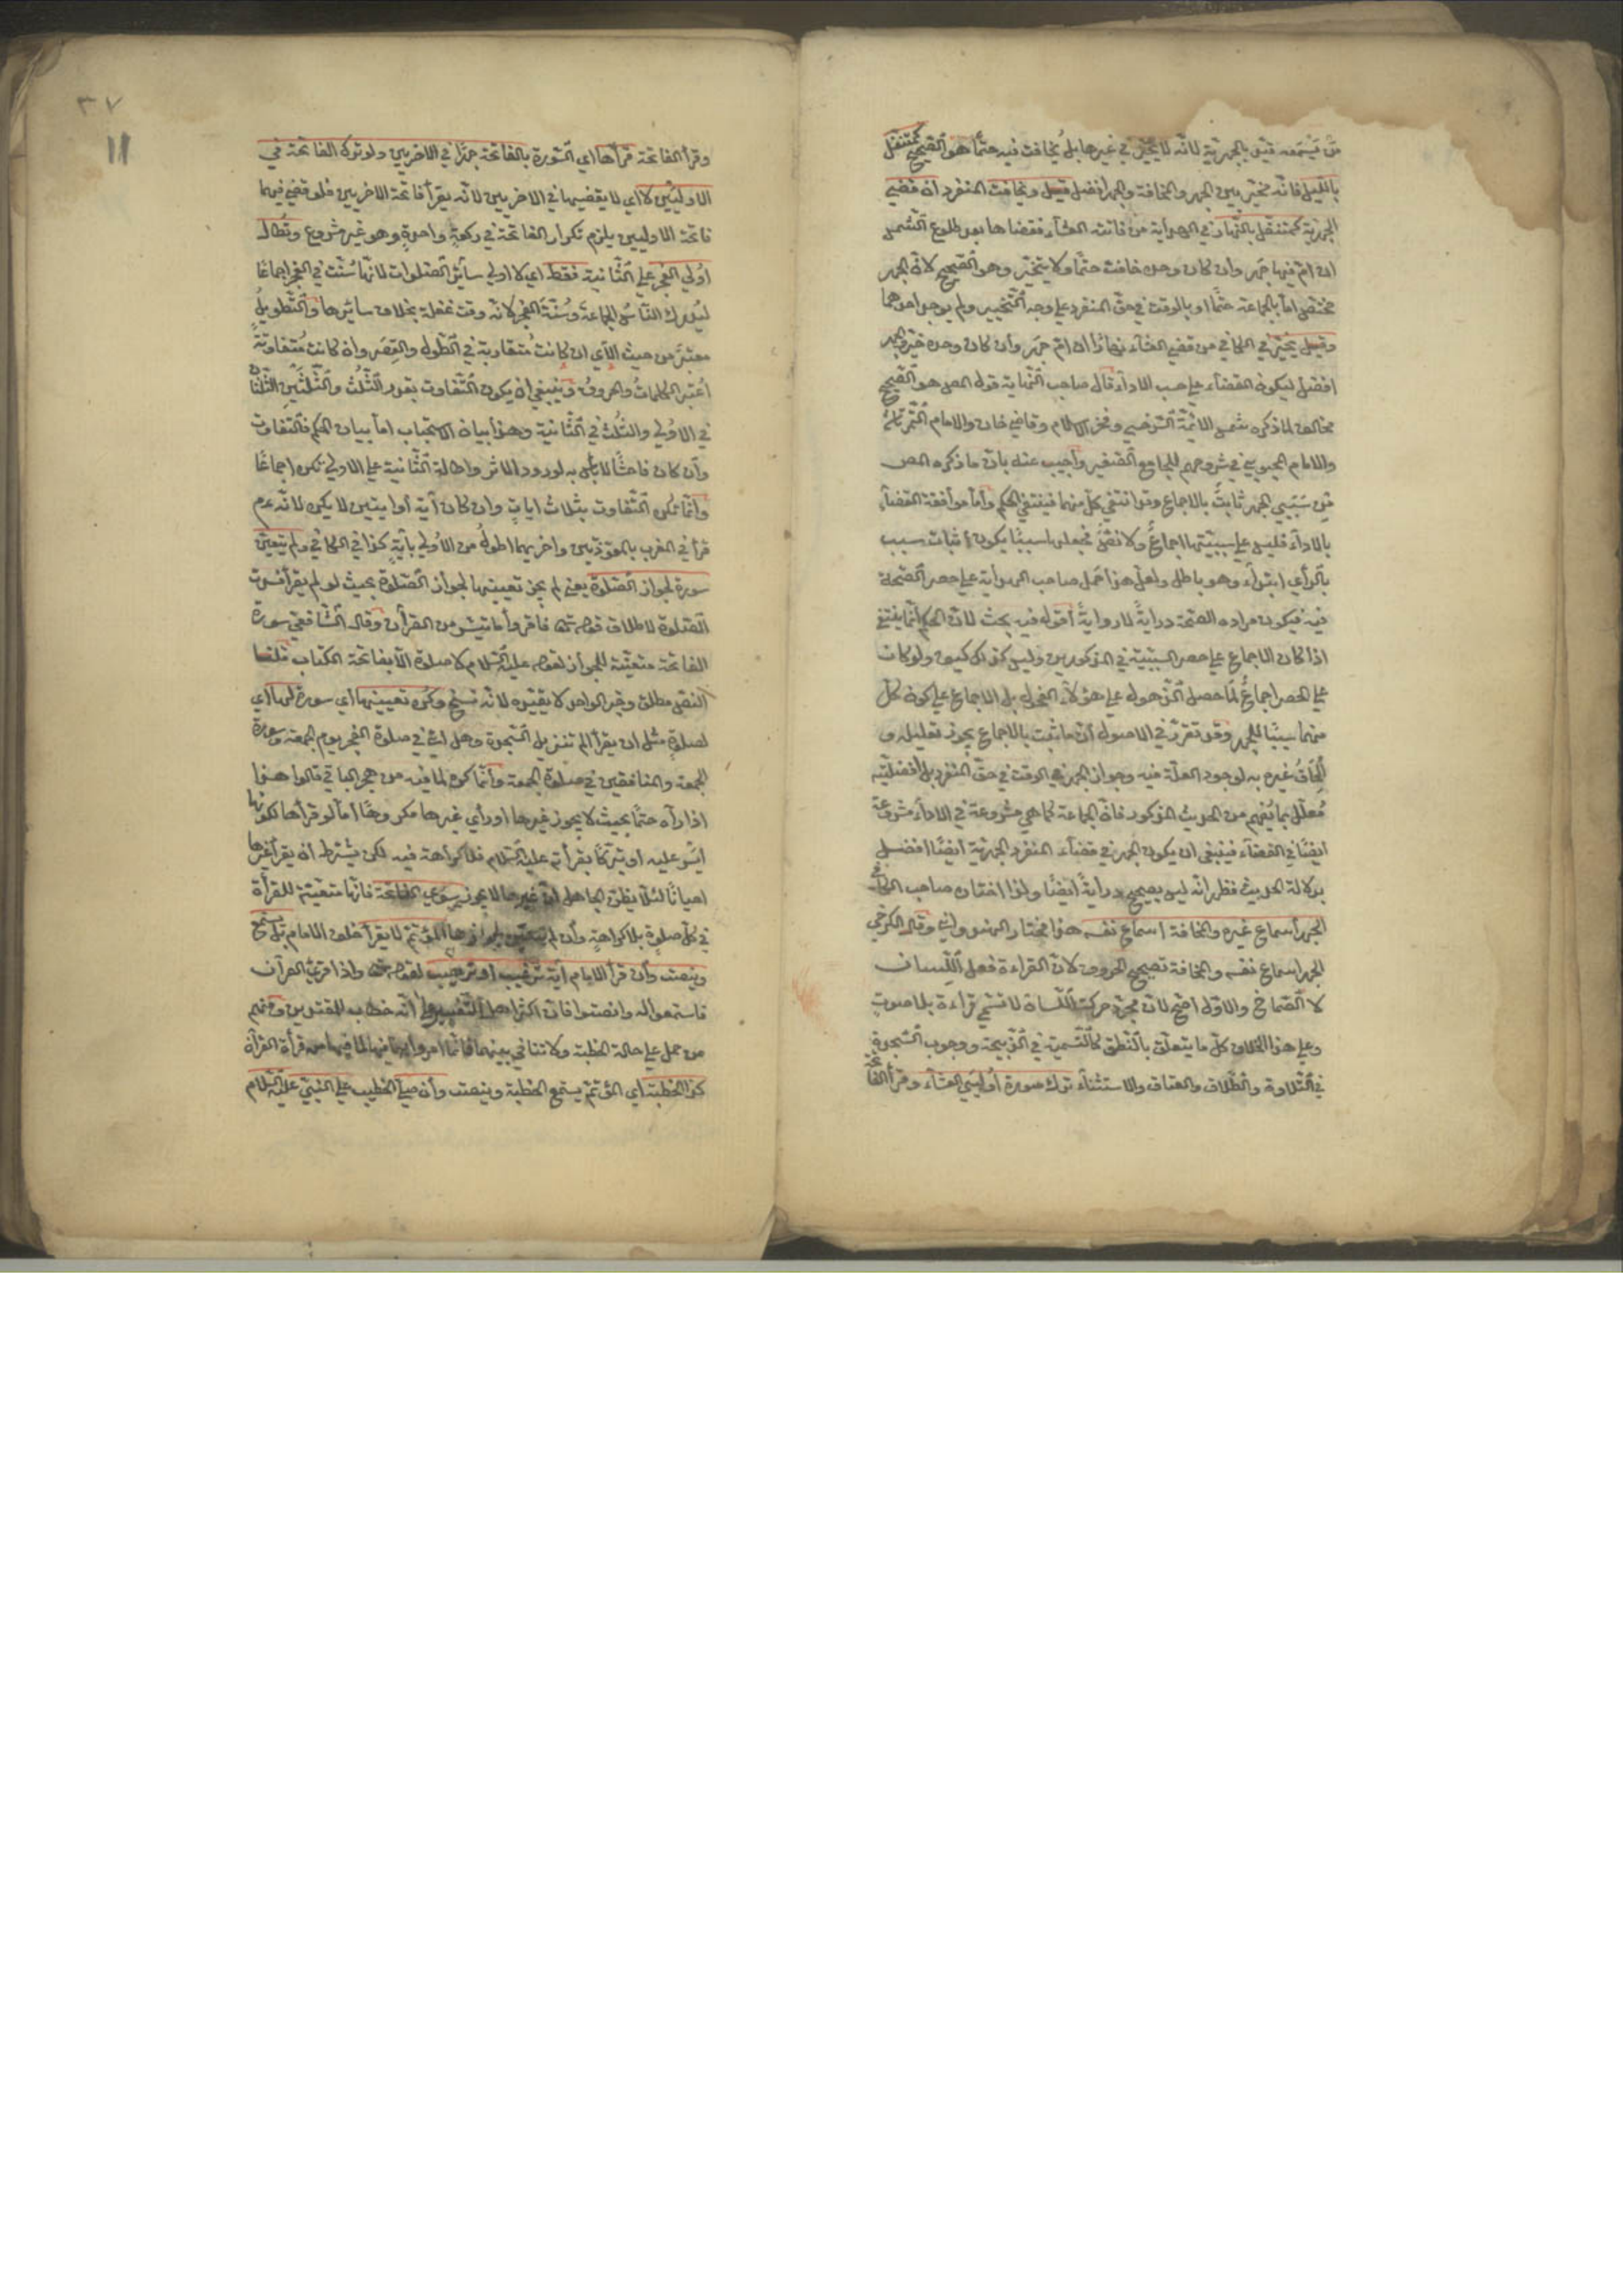 من يسمعه قيد بالجهرية لانه لا يتخير في غيرها بل يخافت فيه حتما هو الصحيح كمتنفل
بالليل فانه مخير بين الجهر والمخافة والجهر افضل قيل ويخافت المنفرد ان قضي
الجهرية كمتنفل بالنهار في الهداية من فاتته العشاء فقضاها بعد طلوع الشمس
ان ام فيها جهر وان كان وحده خافت حتما ولا يتخير وهو الصحيح لان الجهر
مختص اما بالجماعة حتما او بالوقت في حق المنفرد علي وجه التخيير ولم يوجد احدهما
وقيل يخير في الكافي من قضي العشاء نهارا ان ام جهر وان كان وحده خير والجهر
افضل ليكون القضاء علي حسب الاداء قال صاحب النهاية قوله المص هو الصحيح
مخالف لما ذكره شمس الائمة السرخسي وفخر الاسلام وقاضي خان والامام التمرتاشي
والامام المحبوبي في شروحهم للجامع الصغير واجيب عنه بان ما ذكره المص
من سببي الجهر ثابت بالاجماع وقد انتفي كل منهما فينتفي الحكم واما موافقة القضاء
بالاداء فليس علي سببيتها اجماع ولا نص فجعلها سببا يكون اثبات سبب
بالرأي ابتداء وهو باطل ولعل هذا حمل صاحب الهداية علي حصر الصحة
فيه فيكون مراده الصحة دراية لا رواية اقول فيه بحث لان الحكم انما ينتفي
اذا كان الاجماع علي حصر السببية في المذكورين وليس كذلك كيف ولو كان
علي الحصر اجماع لما حصل الذهول علي هؤلاء الفحول بل الاجماع علي كون كل
منهما سببا للجهر وقد تقرر في الاصول ان ما ثبت بالاجماع يجوز تعليله و
الحاق غيره به لوجود العلة فيه وجواز الجهر في الوقت في حق المنفرد بل افضليته
معلل بما يفهم من الحديث المذكور فان الجماعة كما هي مشروعة في الاداء مشروعة
ايضا في القضاء فينبغي ان يكون الجهر في قضاء المنفرد الجهرية ايضا افضل
بدلالة الحديث فظهر انه ليس بصحيح دراية ايضا ولذا اختار صاحب الكافي
الجهر اسماع غيره والمخافة اسماع نفسه هذا مختار الهندواني وقال الكرخي
الجهر اسماع نفسه والمخافة تصحيح الحروف لان القراءة فعل اللسان
لا الصماخ والاول اصح لان مجرد حركة اللسان لا تسمي قراءة بلا صوت
وعلي هذا الخلاف كل ما يتعلق بالنطق كالتسمية في الذبيحة ووجوب السجدة
في التلاوة والطلاق والعتاق والاستثناء ترك سورة اوليي العشاء وقرأ الفاتحة
٣٧
11
وقرأ الفاتحة قرأها اي السورة بالفاتحة جهرا في الاخريين ولو ترك الفاتحة في
الاوليين لا اي لا يقضيها في الاخريين لانه يقرأ فاتحة الاخريين فلو قضي فيهما
فاتحة الاوليين يلزم تكرار الفاتحة في ركعة واحدة وهو غير مشروع وتطال
اولي الفجر علي الثانية فقط اي لا اولي سائر الصلوات لانها سنت في الفجر اجماعا
ليدرك الناس الجماعة وسنة الفجر لانه وقت غفلة بخلاف سائرها والتطويل
معتبر من حيث الآي ان كانت متقاربة في الطول والقصر وان كانت متفاوتة
اعتبر الكلمات والحروف وينبغي ان يكون التفاوت بقدر الثلث والثلثين الثلثان
في الاولي والثلث في الثانية وهذا بيان الاستحباب اما بيان الحكم فالتفاوت
وان كان فاحشا لا بأس به لورود الاثر واطالة الثانية علي الاولي تكره اجماعا
وانما تكره التفاوت بثلاث ايات وان كان آية أو ايتين لا يكره لانه عم
قرأ في المغرب بالمعوذتين واخريهما اطول من الاولي بآية كذا في الكافي ولم يتعين
سورة لجواز الصلوة يعني لم يجز تعيينها لجواز الصلوة بحيث لو لم يقرأ فسدت
الصلوة لاطلاق قوله تع فاقرؤا ما تيسر من القرآن وقال الشافعي سورة
الفاتحة متعينة للجواز لقوله عليه السلام لا صلوة الا بفاتحة الكتاب قلنا
النص مطلق وخبر الواحد لا يقيده لانه نسخ وكره تعيينها اي سورة لها اي
لصلوة مثل ان يقرأ الم تنزيل السجدة وهل اتي في صلوة الفجر يوم الجمعة وسورة
الجمعة والمنافقين في صلوة الجمعة وانما كره لما فيه من هجر الباقي قالوا هذا
اذا رآه حتما بحيث لا يجوز غيرها او رأي غيرها مكروها اما لو قرأها لكونها
ايسر عليه او تبركا بقرأته عليه السلام فلا كراهة فيه لكن يشترط ان يقرأ غيرها
احيانا لئلا يظن الجاهل ان غيرها لا يجوز سوي الفاتحة فانها متعينة للقرأة
في كل صلوة بلا كراهة وان لم يتعين لجوازها المؤتم لا يقرأ خلف الامام بل يستمع
وينصت وان قرأ الامام آية ترغيب او ترهيب لقوله تع واذا قرئ القرآن
فاستمعوا له وانصتوا فان اكثر اهل التفسير علي انه خطاب للمقتدين ومنهم
من حمل علي حالة الخطبة ولا تنافي بينهما فانما امروا بهما فيها لما فيها من قرأة القرآن
كذا الخطبة اي المؤتم يستمع الخطبة وينصت وان صلي الخطيب علي النبي عليه السلام